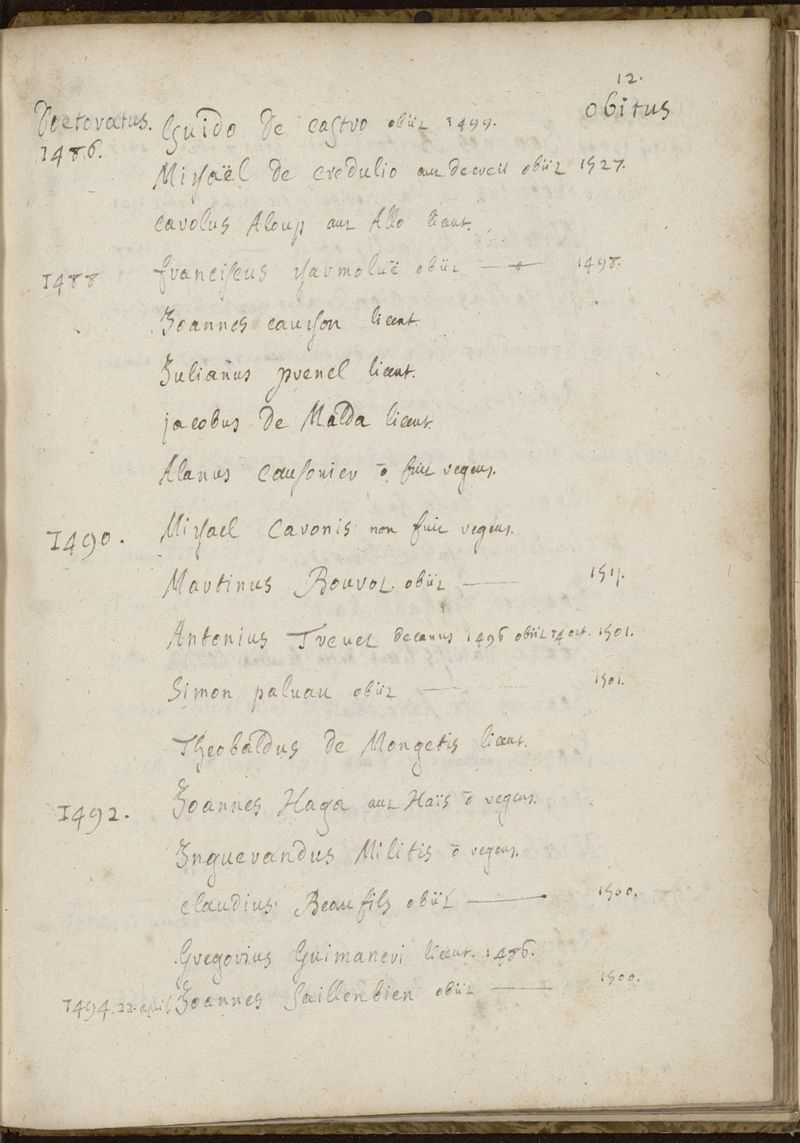 12.
Doctoratus. obitus
1486. Guido de castro obiit 1499.
Michaël de credulio au decreil obiit 1527.
carolus Aloup aut Allo licent.
1488 franciscus charmoluë obiit — 1498.
Joannes cauchon licent.
Julianus prenel licent.
jacobus de Malda licent.
Alanus Causonier ō fuit regens.
1490. Michael Caronis non fuit regens.
Martinus Bouvot obiit —
Antonius Trevet decanus 1496 obiit 14 oct. 1501.
Simon palvau obiit — 1501.
Theobaldus de Mongetis licent.
1492. Joannes Haga aut Haïs ō regens.
Inguerandus Militis ō regens.
claudius Beaufils obiit — 1500.
Gregorius Guimaneri licent. 1486.
1494. 22. april Joannes Saillenbien obiit — 1500.